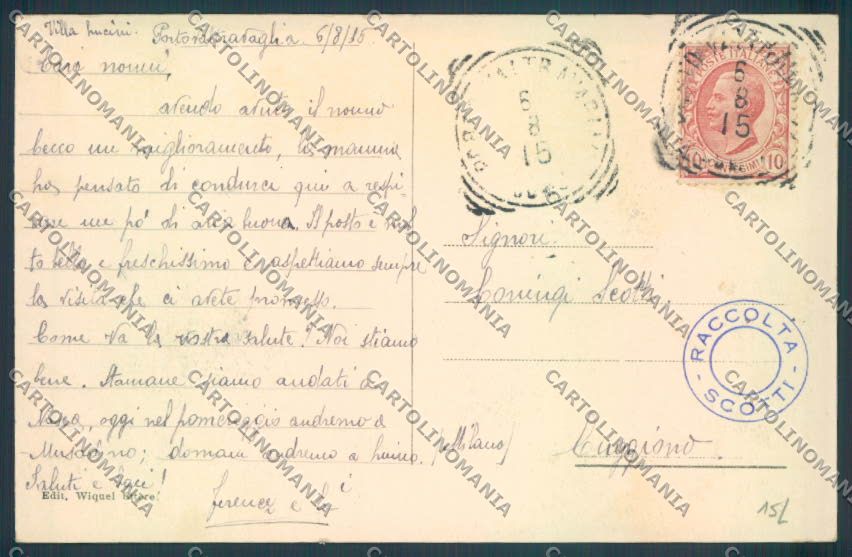 Villa Lucini. Portovaltravaglia 6/8/15
Cari nonni,
avendo avuto il nonno
Becco un miglioramento, la mamma
ha pensato di condurci qui a respi-
rare un po' di aria buona. Il posto è mol
to bello e freschissimo e aspettiamo sempre
la visita che ci avete promesso.
Come va la vostra salute? Noi stiamo
bene. Stamane siamo andati a
oggi nel pomeriggio andremo a
domani andremo a Luino.
Saluti e baci!
Edit. Wiquel
e
Signori
Scotti
(Milano)
Cuggiono
VALTRAVAGLIA
6
8
15
6
8
15
POSTE ITALIANE
10 CENTESIMI 10
RACCOLTA
SCOTTI
15/
CARTOLINOMANIA